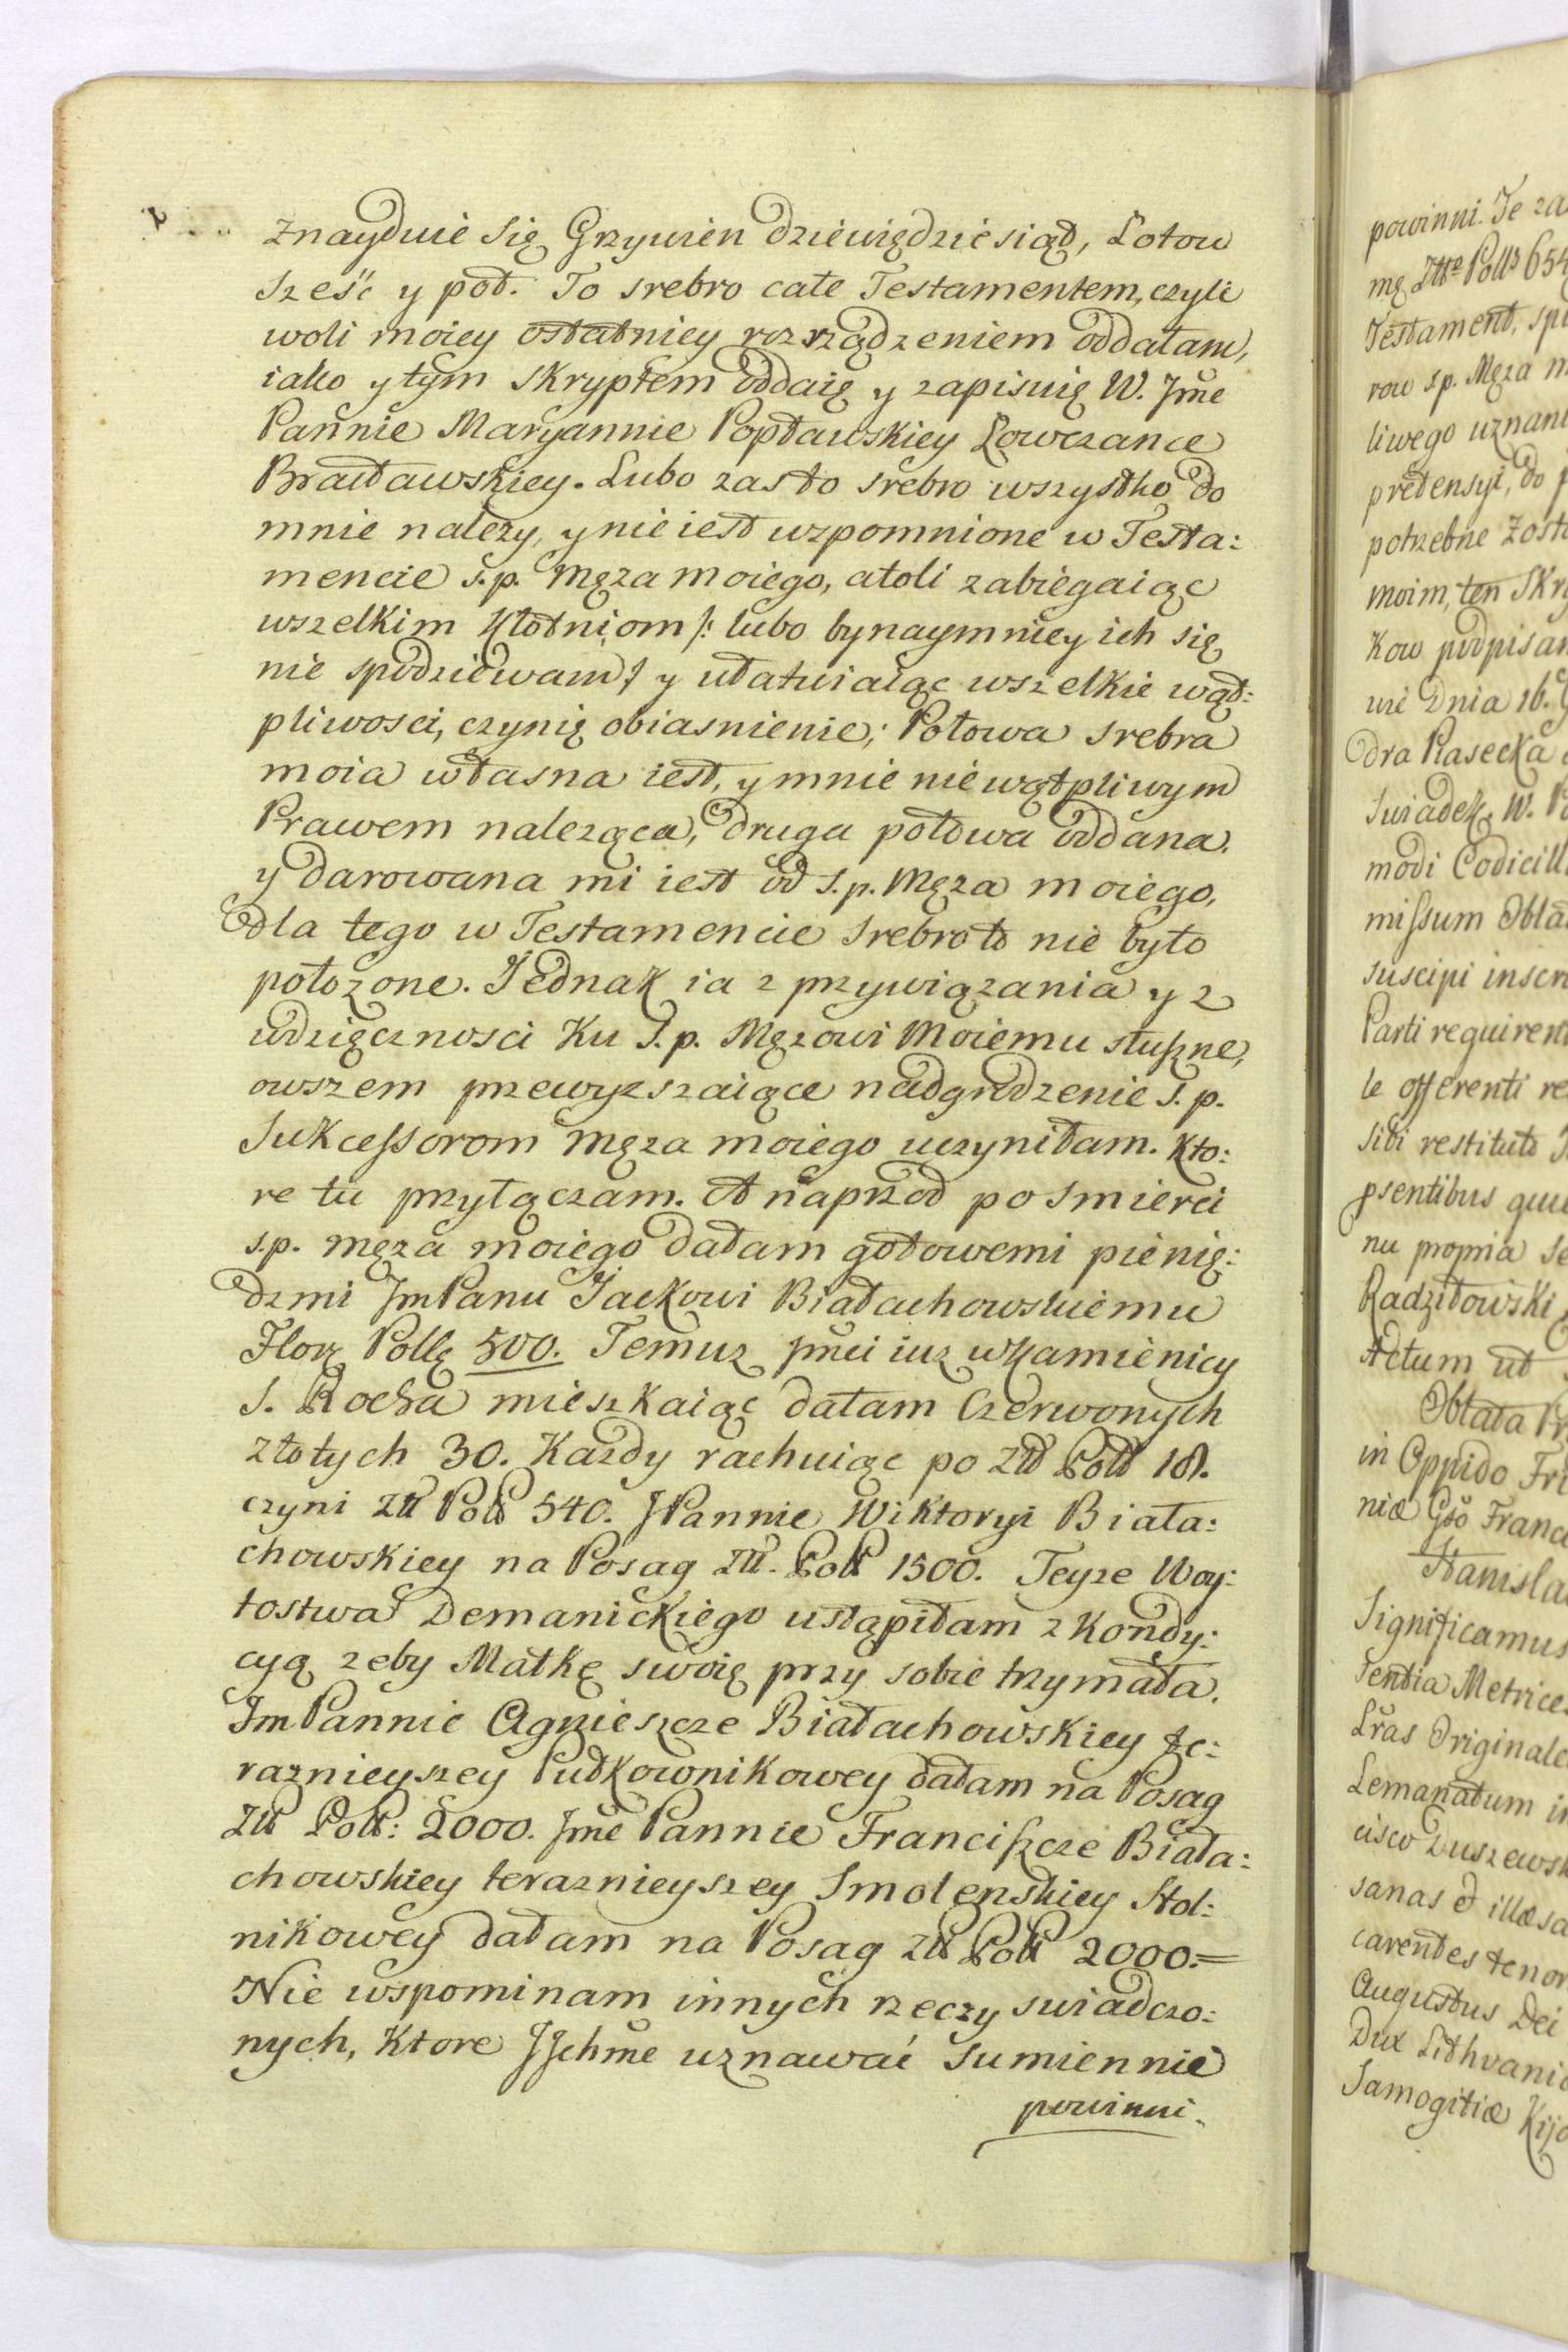 Znayduie się Grzywien dziewiędziesiąt, Łotow
sześć y poł. To srebro całe Testamentem, czyli
woli moiey ostatniey rozrządzeniem oddałam,
iako y tym skryptem oddaię y zapisuię W. Jmc
Pannie Maryannie Popławskiey Łowczance
Bracławskiey. Lubo zas to srebro wszystko do
mnie nalezy, y nie iest wzpomnione w Testa:
mencie ś.p. Męza moiego, atoli zabiegaiąc
wszelkim Kłotniom /: lubo bynaymniey ich się
nie spodziewam / y ułatwiaiąc wszelkie wąt:
pliwosci, czynię obiasnienie; Połowa srebra
moia własna iest, y mnie niewątpliwym
Prawem naleząca, druga połowa oddana.
y darowana mi iest od s.p. Męza moiego,
dla tego w Testamencie srebro to nie było
połozone. Jednak ia z przywiązania y z
wdzięcznosci Ku S.p. Męzowi Moiemu słuszne,
owszem przewyzszaiące nadgrodzenie s.p.
Sukcessorom Męza moiego uczyniłam. Kto:
re tu przyłączam. A naprzod po smierci
s.p. męza moiego dałam gotowemi pienię:
dzmi JmPanu Jackowi Białachowskiemu
Flor. Poll. 500. Temuz Jmci iuz w Kamienicy
S. Rocha mieszkaiąc dałam Czerwonych
złotych 30. Kazdy rachuiąc po Złł Poll 18.
czyni Złł Poll 540. JPannie Wiktoryi Biała:
chowskiey na Posag Złł. Poll 1500. Teyze Woy:
tostwa Demanickiego ustąpiłam z Kondy:
cyą zeby Matkę swoię przy sobie trzymała.
ImPannie Agnieszce Białachowskiey te:
raznieyszey Pułkownikowey dałam na Posag
Złł Poll: 2000. Jmc Pannie Franciszce Biała:
chowskiey teraznieyszey Smolenskiey Stol:
nikowey dałam na Posag Złł Poll 2000.=
Nie wspominam innych rzeczy swiadczo:
nych, Ktore JJchmc uznawać Sumiennie
powinni.
powinni. Te za
mę Złłe Polls 654
Testament, spi
row s.p. Męza m
liwego uznani
pretensyi, do p
potrzebne Zosta
moim, ten Skry
Kow podpisan
wie Dnia 16.
dra Rasecka
Swiadek. W. P
modi Codicill
missum Obla
suscipi inscri
Parti requirent
le offerenti re
sibi restituto
psentibus qui
nu propria se
Radziłowski
Actum ut
Oblata Pr
in Oppido Fri
niæ Gso Franc
Stanisla
Significamus
sentia Metrice
Lras Originale
Lemanatum in
cisco Duszewsk
sanas et illæsa
carentes tenor
Augustus Dei
Dux Lithvaniæ
Samogitiæ Kijo